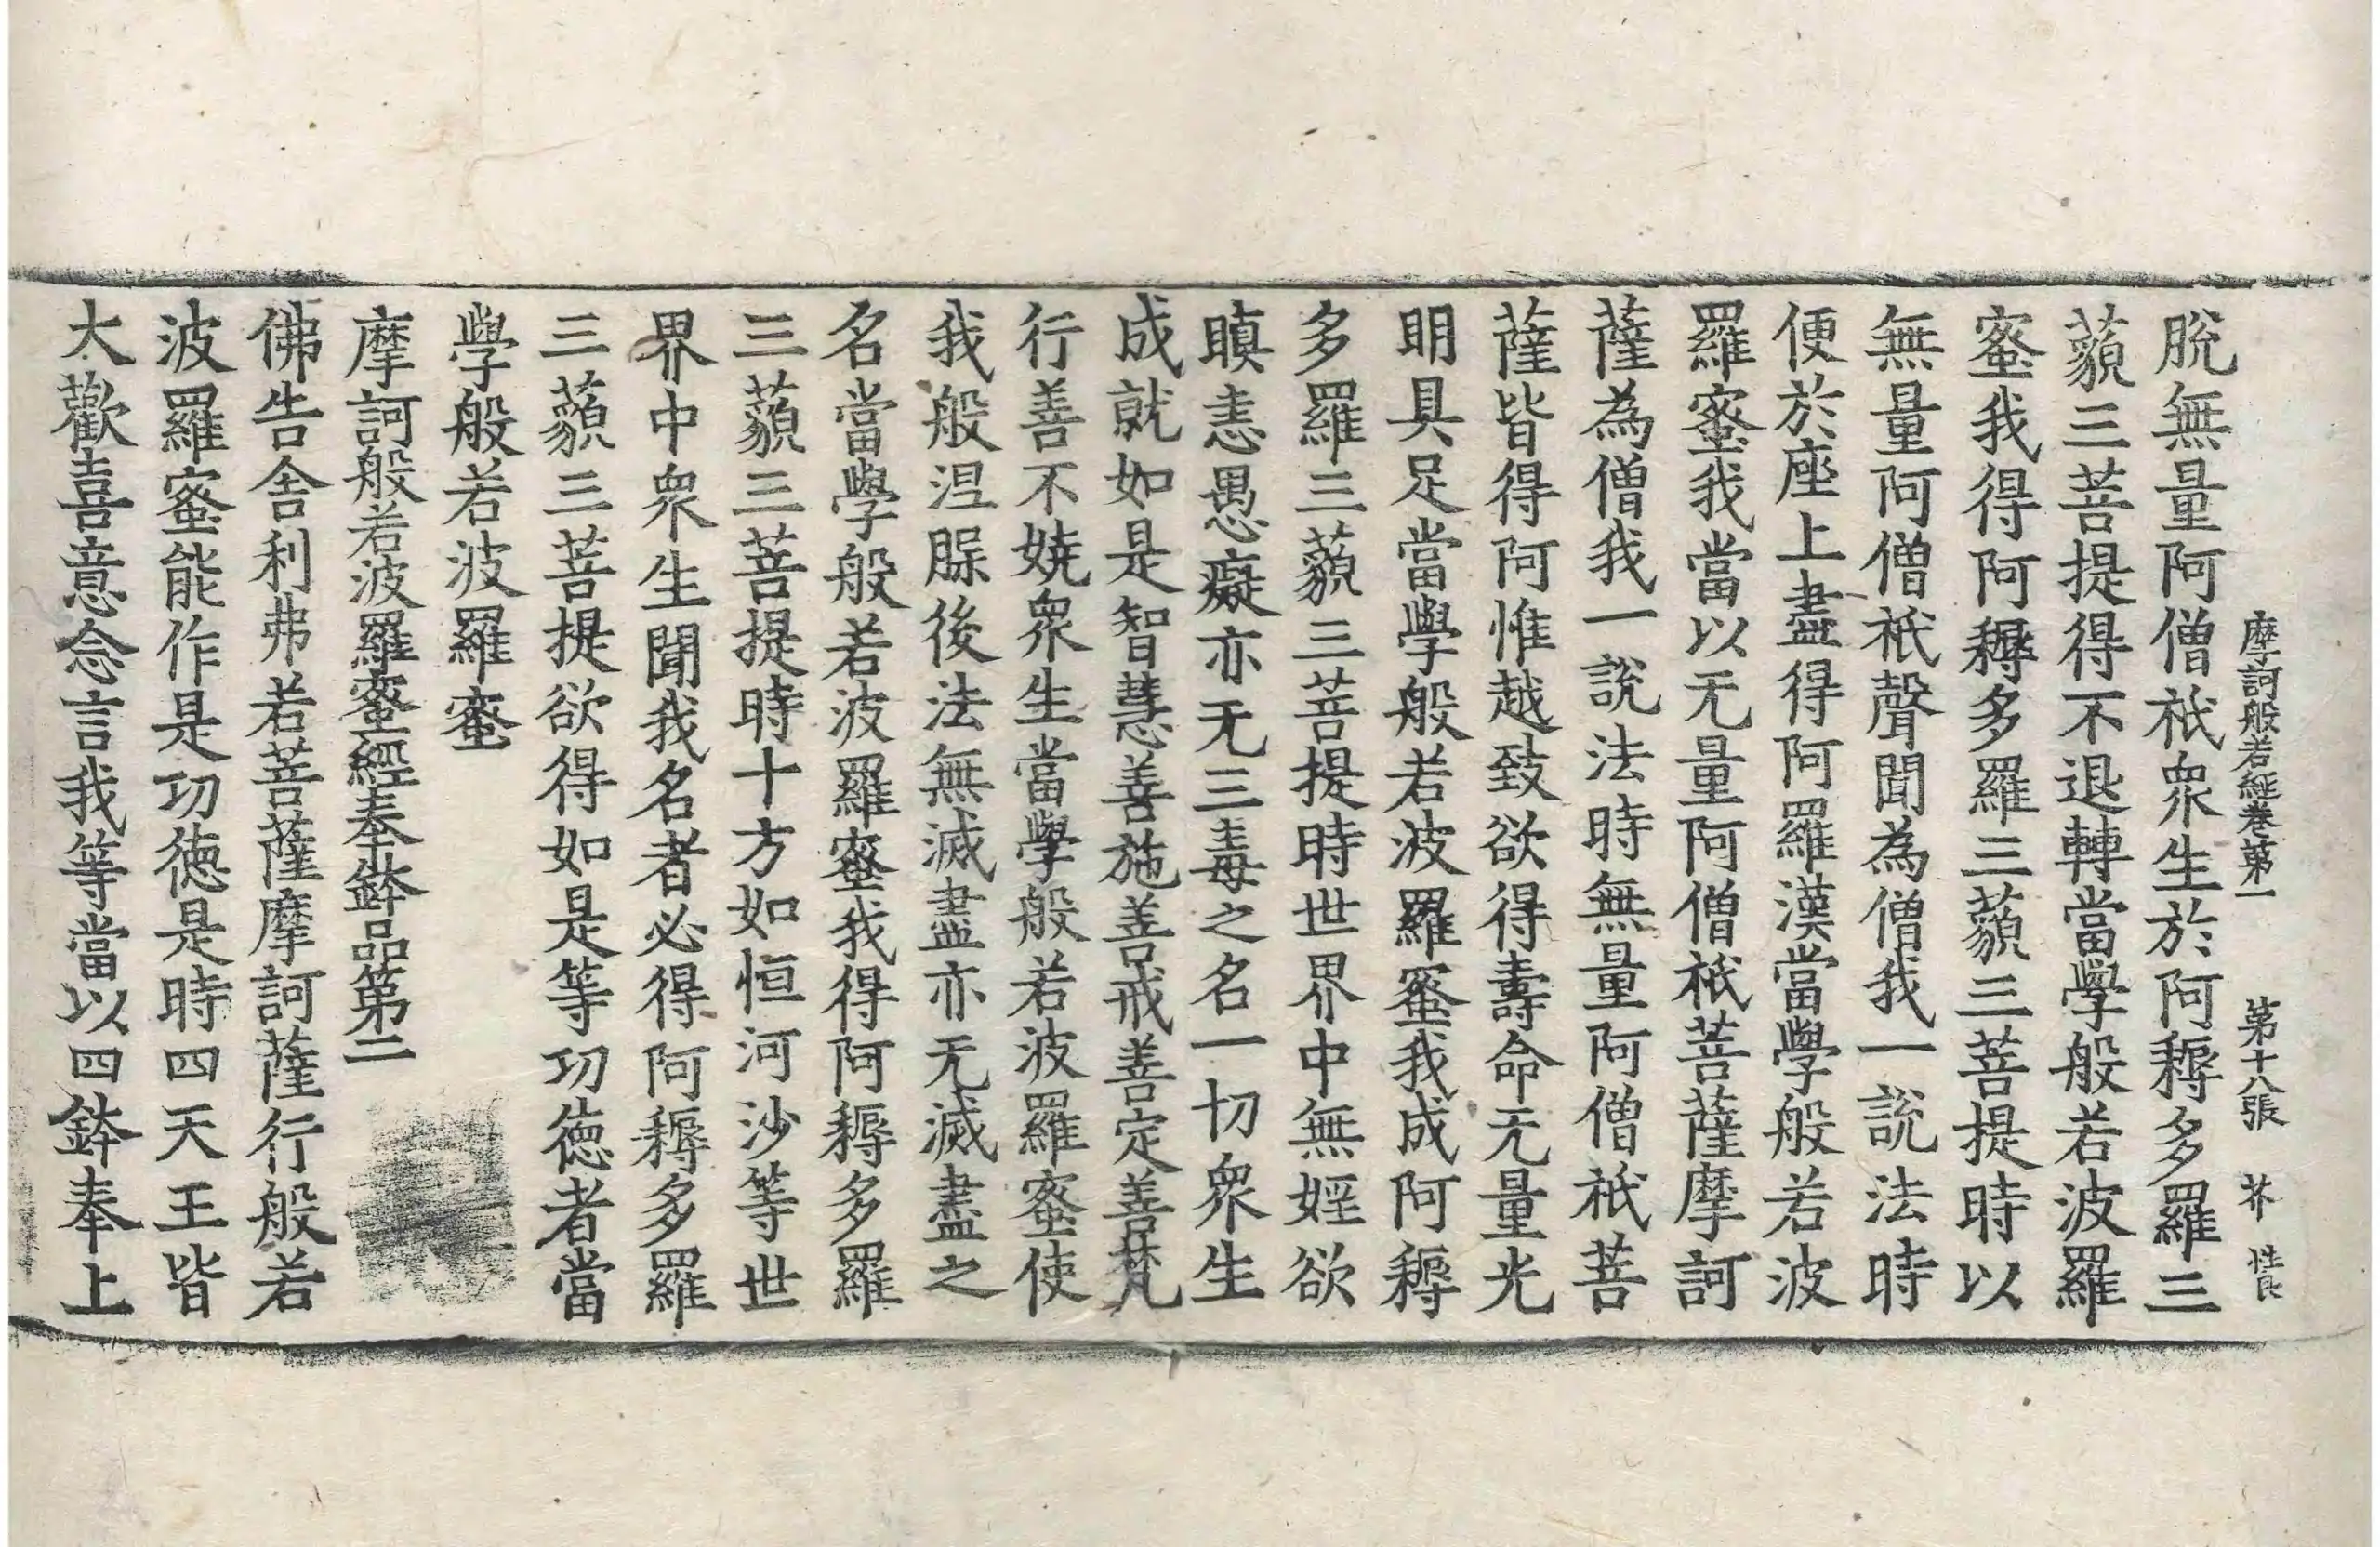 摩訶般若經卷第一　第十八張　芥　性良
脫無量阿僧祇衆生於阿耨多羅三
藐三菩提得不退轉當學般若波羅
蜜我得阿耨多羅三藐三菩提時以
無量阿僧祇聲聞為僧我一說法時
便於座上盡得阿羅漢當學般若波
羅蜜我當以无量阿僧祇菩薩摩訶
薩為僧我一說法時無量阿僧祇菩
薩皆得阿惟越致欲得壽命无量光
明具足當學般若波羅蜜我成阿耨
多羅三藐三菩提時世界中無婬欲
瞋恚愚癡亦无三毒之名一切衆生
成就如是智慧善施善戒善定善梵
行善不嬈衆生當學般若波羅蜜使
我般涅脲後法無滅盡亦无滅盡之
名當學般若波羅蜜我得阿耨多羅
三藐三菩提時十方如恒河沙等世
界中衆生聞我名者必得阿耨多羅
三藐三菩提欲得如是等功德者當
學般若波羅蜜
摩訶般若波羅蜜經奉鉢品第二
佛告舍利弗若菩薩摩訶薩行般若
波羅蜜能作是功德是時四天王皆
大歡喜意念言我等當以四鉢奉上